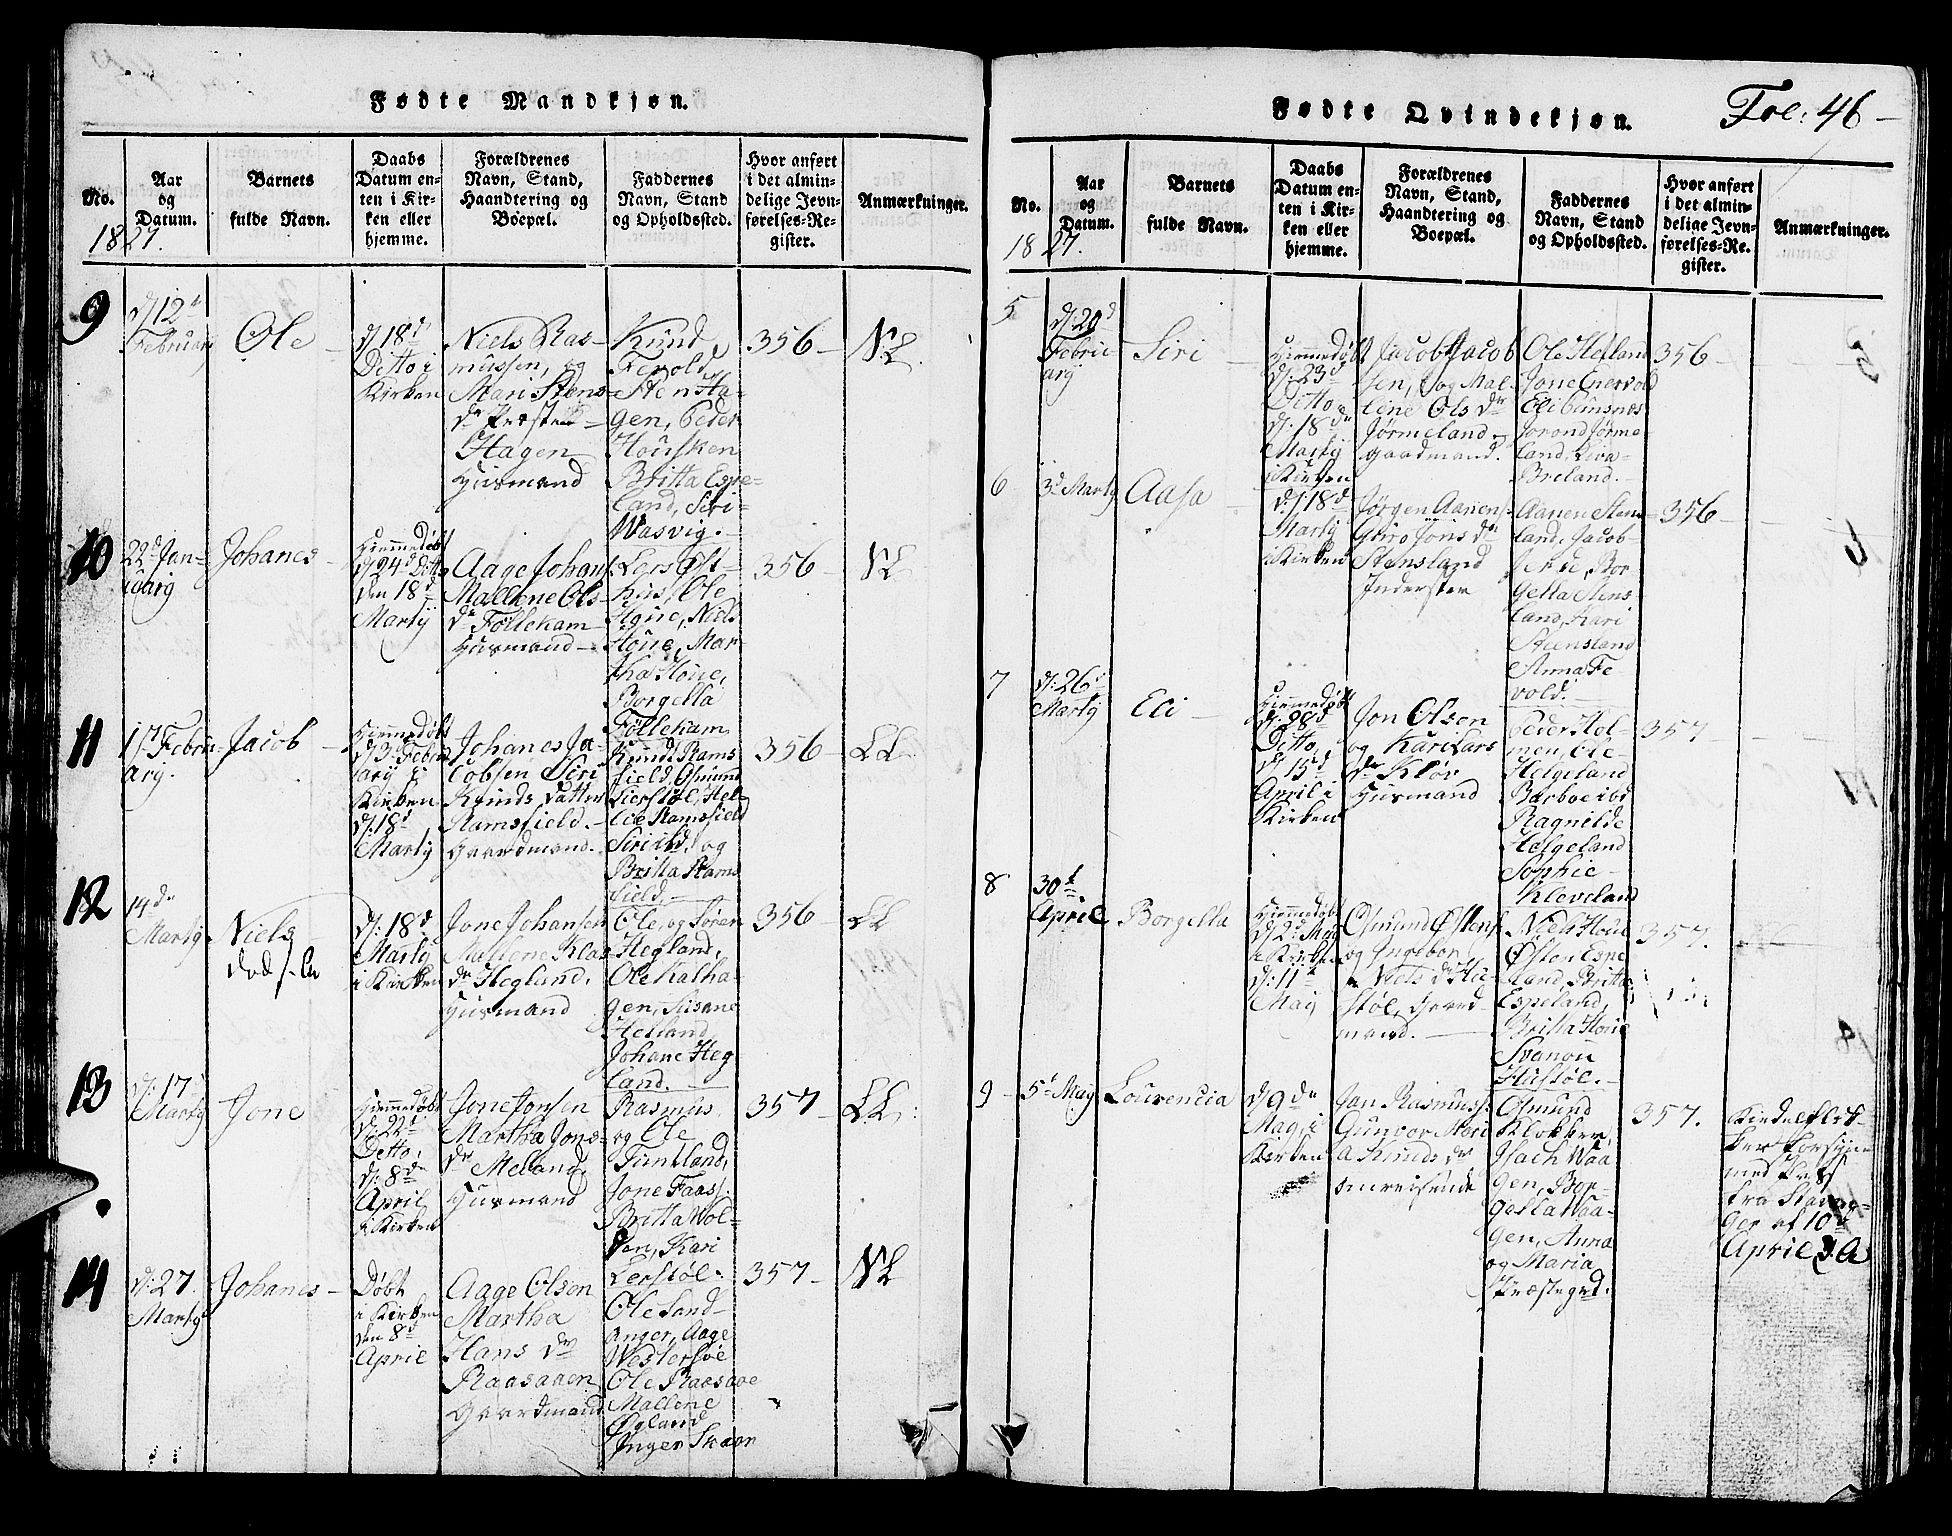 Fødte Mandkjøn.
No.
Aar
og
Datum.
Barnets
fulde Navn.
Daabs
Datum en-
ten i Kir-
ken eller
hjemme.
Forældrenes
Navn, Stand,
Haandtering og
Boepæl.
Faddernes
Navn, Stand
og Opholdssted.
Hvor anført
i det almin-
delige Jevn-
førelses-Re-
gister.
Anmærkninger.
1827.
9
d/12
Februarij
Ole
d/18d
Ditto i
Kirken
Niels Ras-
mussen, og
Mari Stens-
dr
Hagen
Huusmand
Knud
Fevold
Stensta-
gen, Peder
Housken
Britta Espe-
land, Siri
Wasvig.
356
NL
10
22d Jan-
uarij
Johanes
Hiemmedøbt
d/24d Ditto
den 18d
Martij
Aage Johans.
Mallene Ols-
dr Følleham
Huusmand
Lers Øst-
huus, Ole
Houe, Niels
Houe, Mar-
tha Houe,
Borgella
Følleham
356
NL
11
1ste Febru-
arij.
Jacob
Hiemmedøbt
d/3d Febru
arij i
Kirken
d/18d
Martij
Johanes Ja-
cobsen Siri
Knuds Datter
Ramsfield.
Gaardmand.
Knud Rams
field, Osmund
Lierstøl, Hel-
lie Ramsfield
Siri ibd, og
Britta Rams
field.
356
LL
12
14de
Martij
Niels
død
d/18d
Martij
i Kirken
Jone Johansen
Mallene Klas
dr Hegland.
Huusmand
Ole, og Søren
Hegland,
Ole Kalha-
gen, Susane
Helland,
Johane Heg
land.
356
LL
13
d/17
Martij
Jone
Hiemmedøbt
d/22d
Ditto,
d/8de
April
i Kirken
Jone Jonsen
Martha Jons-
dr Meland
Huusmand
Rasmus
og Ole
Tunkland,
Jone Faass.
Britta Wol-
den, Kari
Lerstøl.
357
LL
14
d/27
Martij
Johanes
Døbt
i Kirken
den 8d
April
Aage Olson
Martha
Hans dr
Raasaaen
Gaardmand
Ole Sand-
anger, Aage
Westersøe
Ole Raasaae
Mallene
Øgland
Inger Skaar
357
NL
Fødte Qvindekjøn.
Fol: 46
No.
Aar
og
Datum.
Barnets
fulde Navn.
Daabs
Datum en-
ten i Kir-
ken eller
hjemme.
Forældrenes
Navn, Stand,
Haandtering og
Boepæl.
Faddernes
Navn, Stand
og Opholdssted.
Hvor anført
i det almin-
delige Jevn-
førelses-Re-
gister.
Anmærkninger.
1827.
5
d/20d
Febru
arij
Siri
Hiemmedøbt
d/23d
Ditto
d/18de
Martij
i Kirken
Jacob Jacob
sen, og Mal-
lene Ols dr
Jørmeland
Gaardmand.
Ole Helland
Jone Enevold
Eli
Jorond Jørme
land, Liva
Breland.
356
6
3d Martij
Aasa
d/18d
Martij
i Kirken
Jørgen Aanens.
Guro Jons dr
Stensland
Inderster
Aanen Stens
land, Jacob
Bor-
gella Stens-
land, Kari
Steensland
Anna Fe
vold.
356
7
d/26d
Martij
Eli
Hiemmedøbt
d/28d
Ditto,
d/15d
April i
Kirken
Jon Olson
og Kari Lars
dr Kløv
Huusmand
Peder Hol-
men, Ole
Helgeland
Barboe ibd
Ragnilde
Helgeland
Sophie
Kleveland
357
8
30t
April
Borgella
Hiemmedøbt
d/2d Maij
i Kirken
d/11t
Maij
Osmund Østens.
og Ingebor
Niels dr Hu-
støl, Gaard-
mand.
Niels Houe
Østen Espe
land, Britta
Espeland,
Britta Houe
Svanou
Hustøl.
357.
9
5t Maij
Lourencia
d/9de
Maij i
Kirken
Jan Rasmuss.
Gunvor Mari
a Knuds dr
omreisende
Osmund
Klokker,
Isach Waa
gen, Bor-
gella Waa-
gen, Anna
og Maria
Præstegrd.
357.
med Pas
fra Stavan-
ger af 10d
April